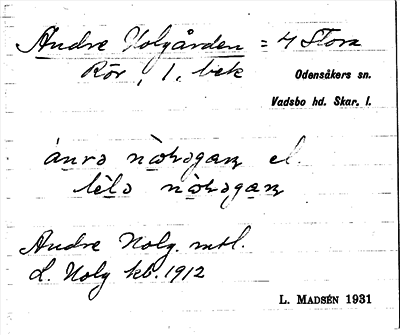 Andre Nolgården = 4 Stora
Rör, 1, bek
Odensåkers sn.
Vadsbo hd. Skar. l.
ánrə nə̀rəgaꞃ el.
lèlə nə̀rəgaꞃ
Andre Nolg. mtl.
L. Nolg kb. 1912
L. MADSÉN 1931